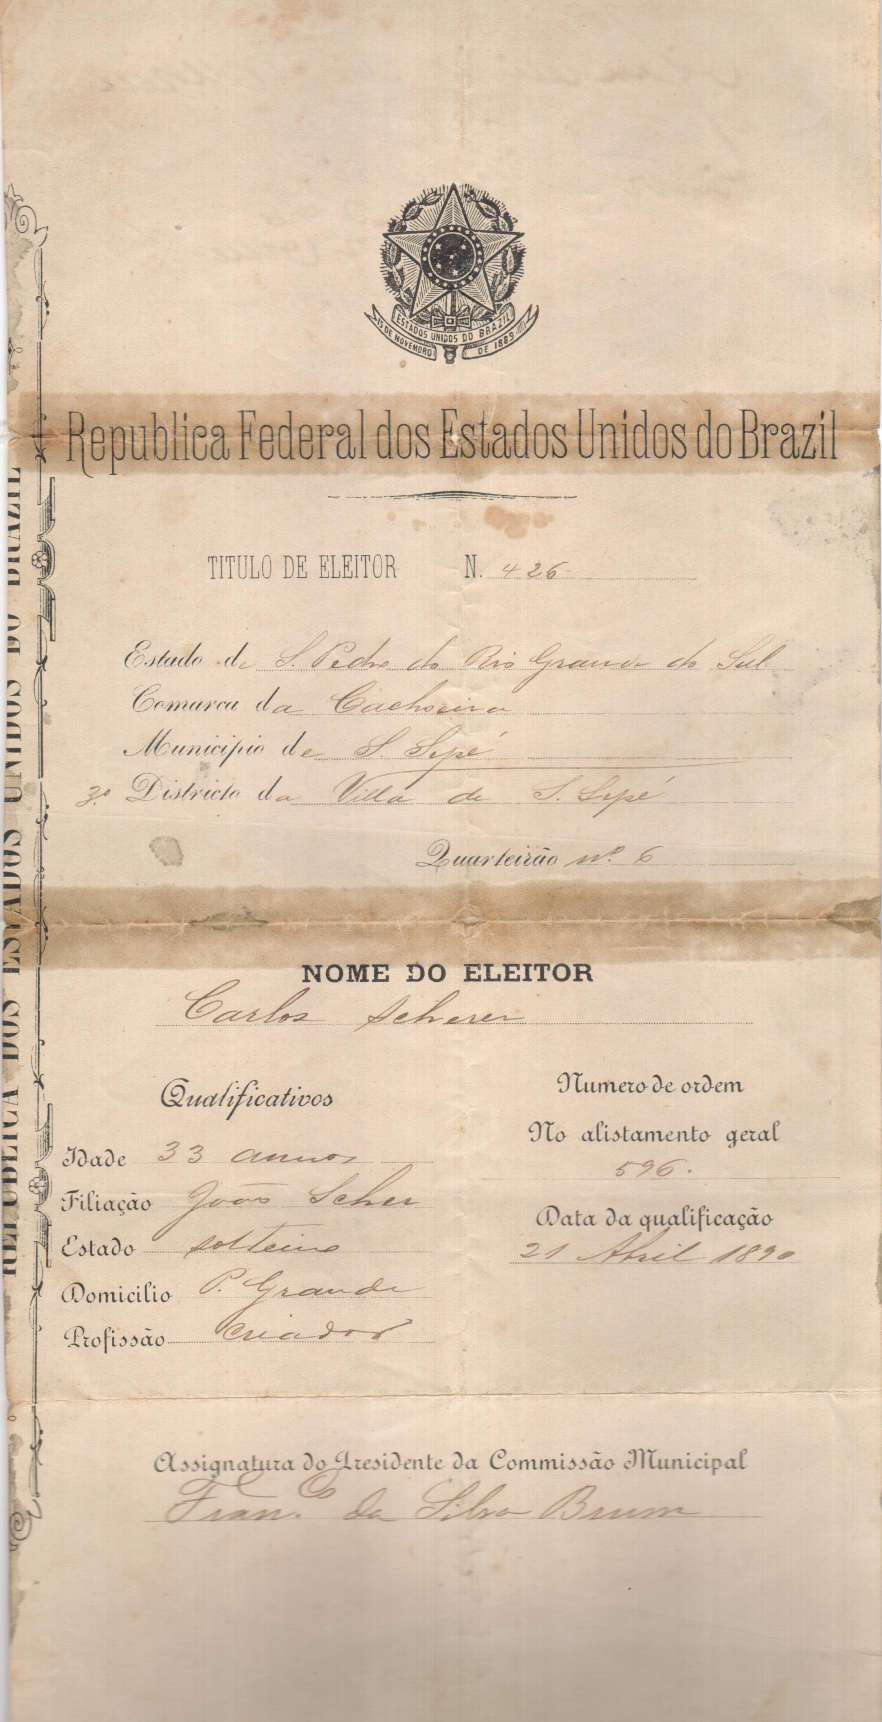 ESTADOS UNIDOS DO BRAZIL
15 DE NOVEMBRO DE 1889
Republica Federal dos Estados Unidos do Brazil
TITULO DE ELEITOR N. 426
Estado de S. Pedro do Rio Grande do Sul
Comarca da Cachoeira
Municipio de S. Sepé
3º Districto da Villa de S. Sepé
Quarteirão nº 6
NOME DO ELEITOR
Carlos Scherer
Qualificativos
Idade 33 annos
Filiação João Scher
Estado solteiro
Domicilio P. Grande
Profissão criador
Numero de ordem
No alistamento geral
596.
Data da qualificação
21 Abril 1890
Assignatura do Presidente da Commissão Municipal
Fran.co da Silva Brum
REPUBLICA DOS ESTADOS UNIDOS DO BRAZIL